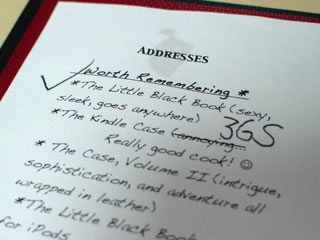 ADDRESSES
Worth Remembering *
*The Little Black Book (sexy,
sleek, goes anywhere)
*The Kindle Case (annoying... 3GS
Really good cook! ☺
* The Case, Volume II (intrigue,
sophistication, and adventure all
wrapped in leather)
*The Little Black Book
for iPods